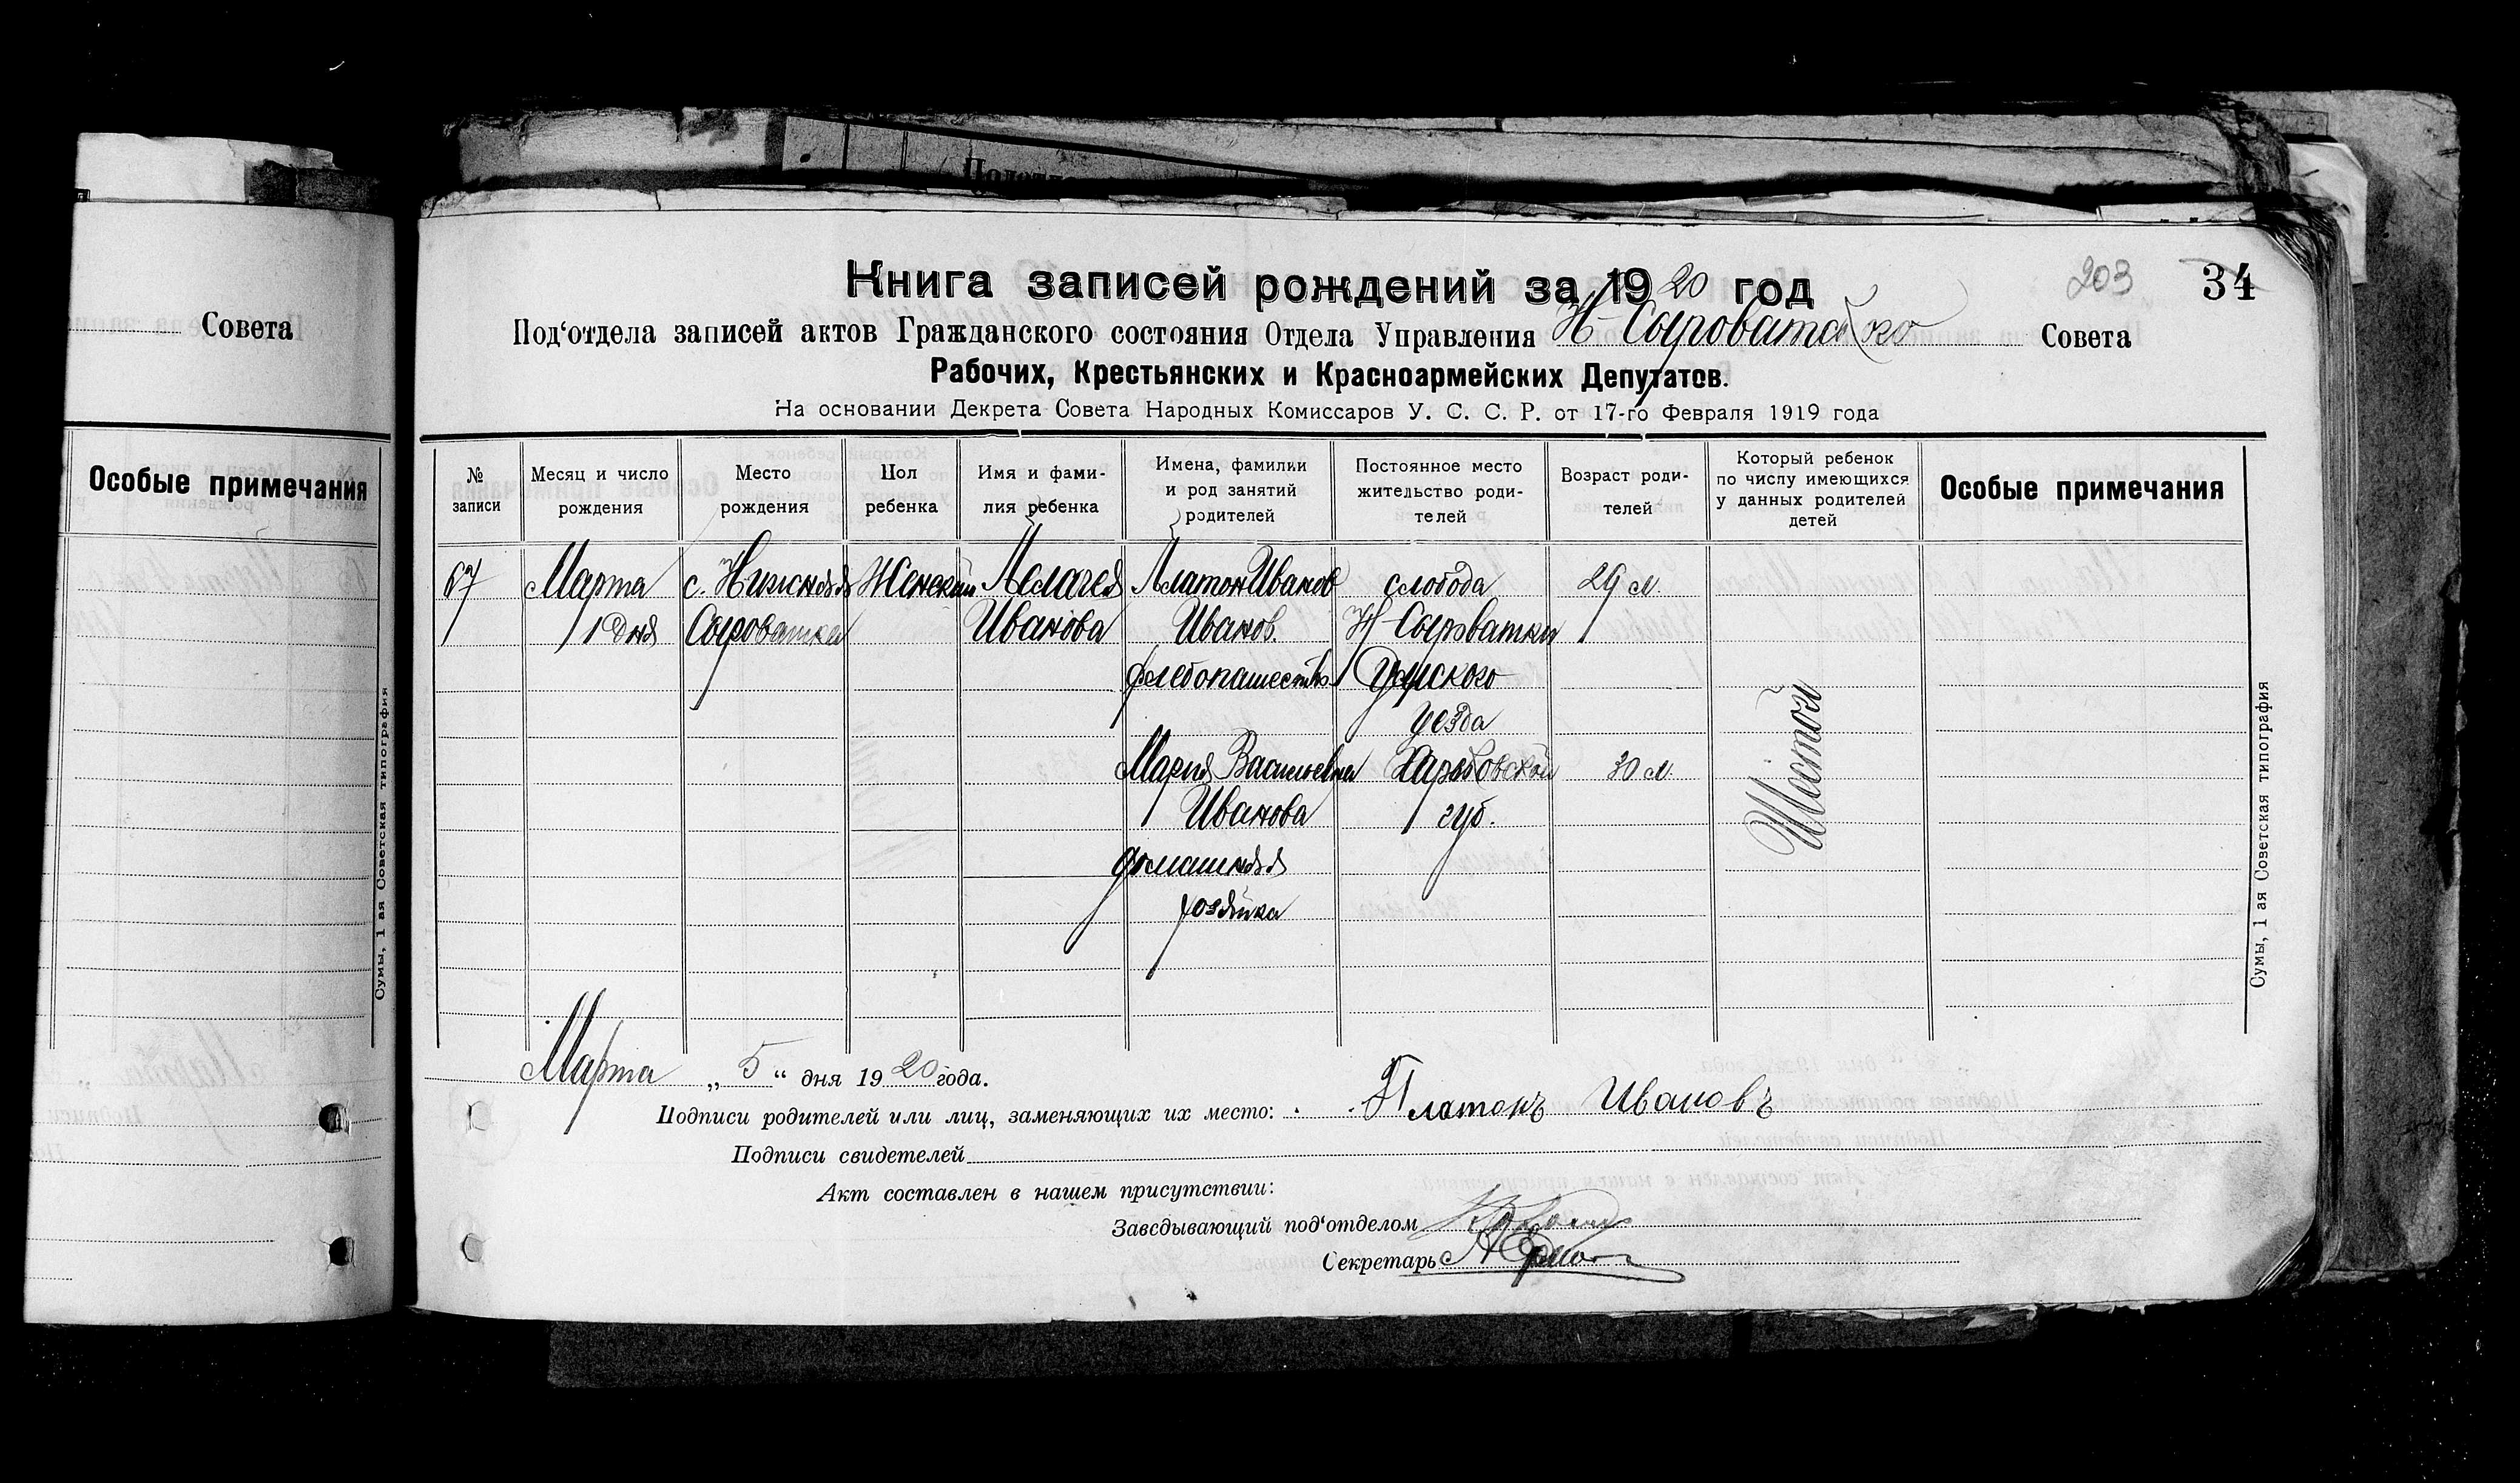 Совета
Особые примечания
Сумы, 1 ая Советская типография
203
34
Книга записей рождений за 1920 год
Под‘отдела записей актов Гражданского состояния Отдела Управления Н-Сыроватско Совета
Рабочих, Крестьянских и Красноармейских Депутатов.
На основании Декрета Совета Народных Комиссаров У. С. С. Р. от 17-го Февраля 1919 года
№ записи
Месяц и число рождения
Место рождения
Пол ребенка
Имя и фами-
лия ребенка
Имена, фамилии
и род занятий
родителей
Постоянное место
жительство роди-
телей
Возраст роди-
телей
Который ребенок
по числу имеющихся
у данных родителей
детей
Особые примечания
67
Марта
1 дня
с. Нижняя
Сыроватка
Женский
Пелагея
Иванова
Платон Иванов
Иванов.
хлебопашество
Мария Васильевна
Иванова
домашняя
хозяйка
слобода
Н-Сыроватки
Сумского
уезда
Харьковской
губ.
29 л.
30 л.
Шестой
Сумы, 1 ая Советская типография
Марта „ 5 “ дня 1920 года.
Подписи родителей или лиц, заменяющих их место: Платонъ Ивановъ
Подписи свидетелей
Акт составлен в нашем присутствии:
Заведывающий под‘отделом
Секретарь